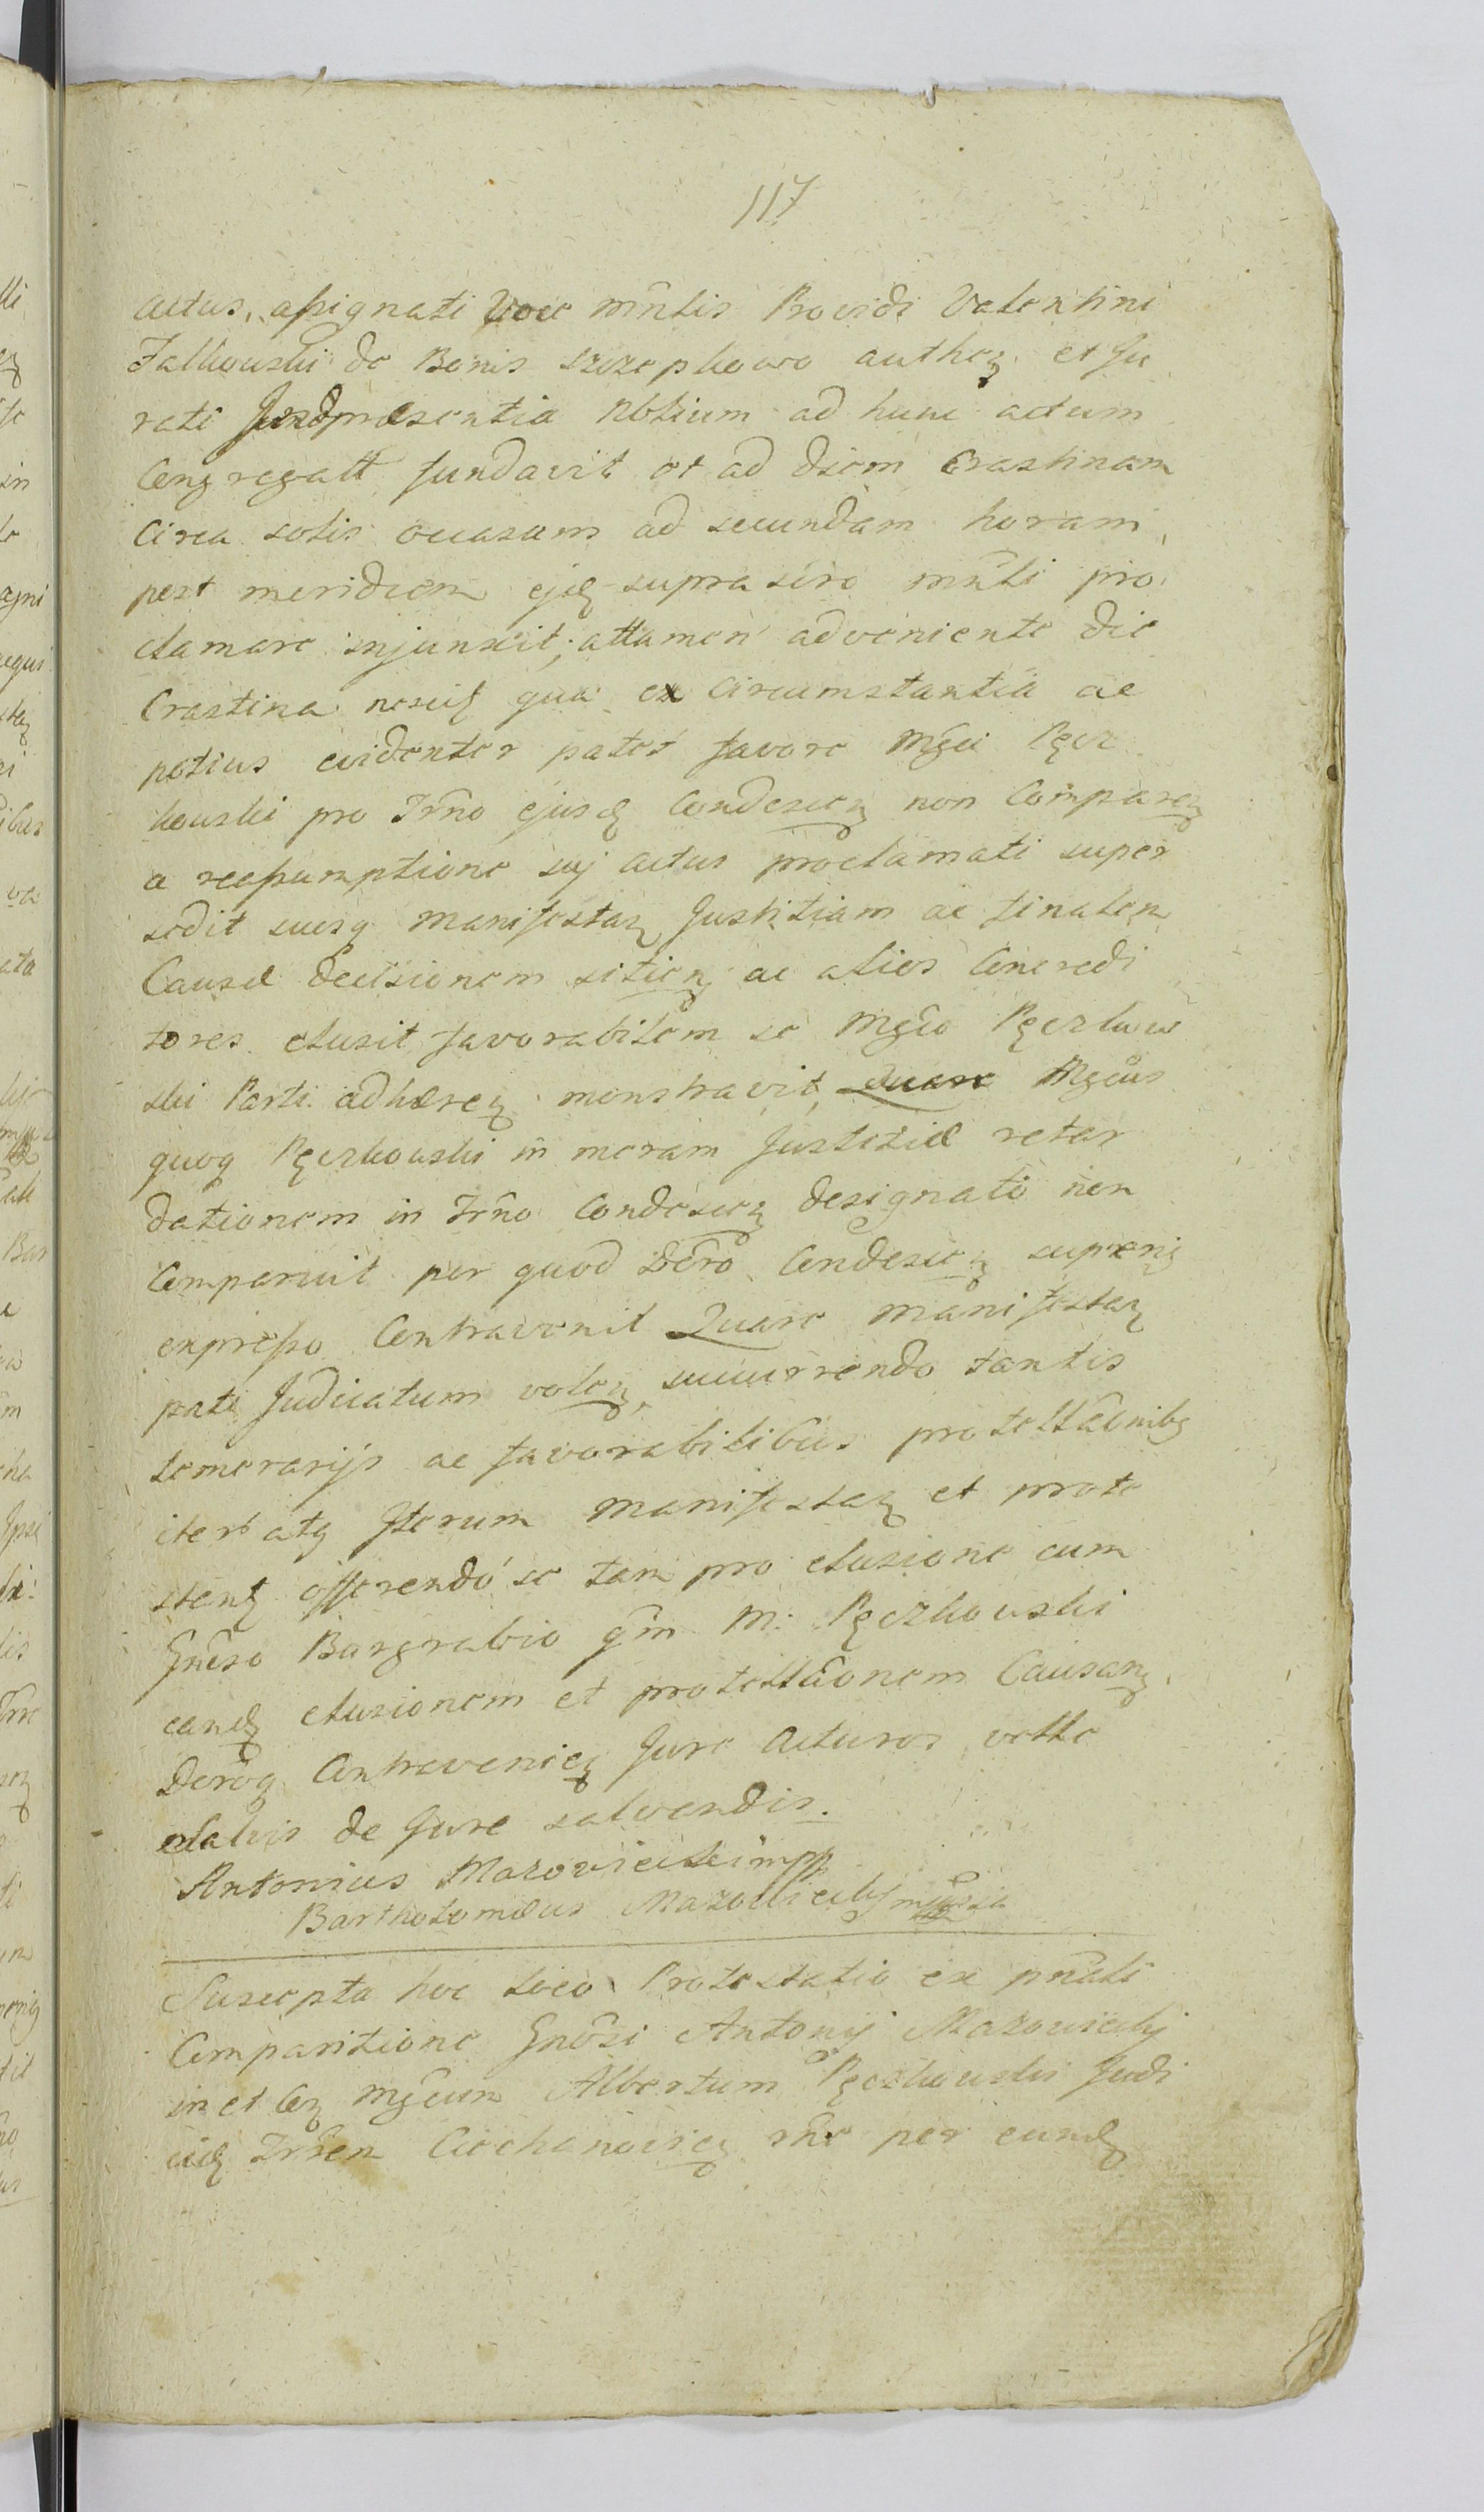 117
actus, assignati voce mñlis Providi Valentini
Falkowski de Bonis Szczepkowo authen et Ju
rati Jurd præsentia Nbilium ad hunc actum
Congregatt fundavit et ad diem Crastinam
Circa solis occasum ad secundam horam
post meridiem ejsd supra scro mñli pro
clamare injunxit, attamen adveniente die
Crastina nesciq qua ex Circumstantia ac
potius evidenter patet favore Mgci Pęcz
kowski pro Trño ejusd Condescen non Comparen
a reassumptione suj actus proclamati super
sedit suosq Manifestan Justitiam ac finalem
Causæ decisionem sitien ac alios Concredi
tores elusit favorabilem se Mgco Pęczkow
ski Parti adhæren monstravit, Quare Mgcus
quoq Pęczkowski in moram Justitiæ retar
dationem in Trño Condescen designato non
Comparuit per quod Dcro Condescen supreniq
expresso Contravenit Quare Manifestan
pati Judicatum volen, succurrendo tantis
temerarijs ac favorabilibus protesttãonibq
iterů atq Iterum Manifestan et prote
stanť offerendo se tam pro elusione cum
Gnẽso Burgrabio qm M: Pęczkowski
eandq elusionem et protesttãonem Causan
Deroq Contravenien Jure Acturos velle
Salvis de Jure salvandis.
Antonius Mazowiecki mpp
Bartholomæus Mazowieckj mppria
Suscepta hoc loco Protestatio ex pñali
Comparitione Gnõsi Antonij Mazowieckj
in et Con Mgcum Albertum Pęczkowski Judi
cię Trřem Ciechanovien rñe per eundq